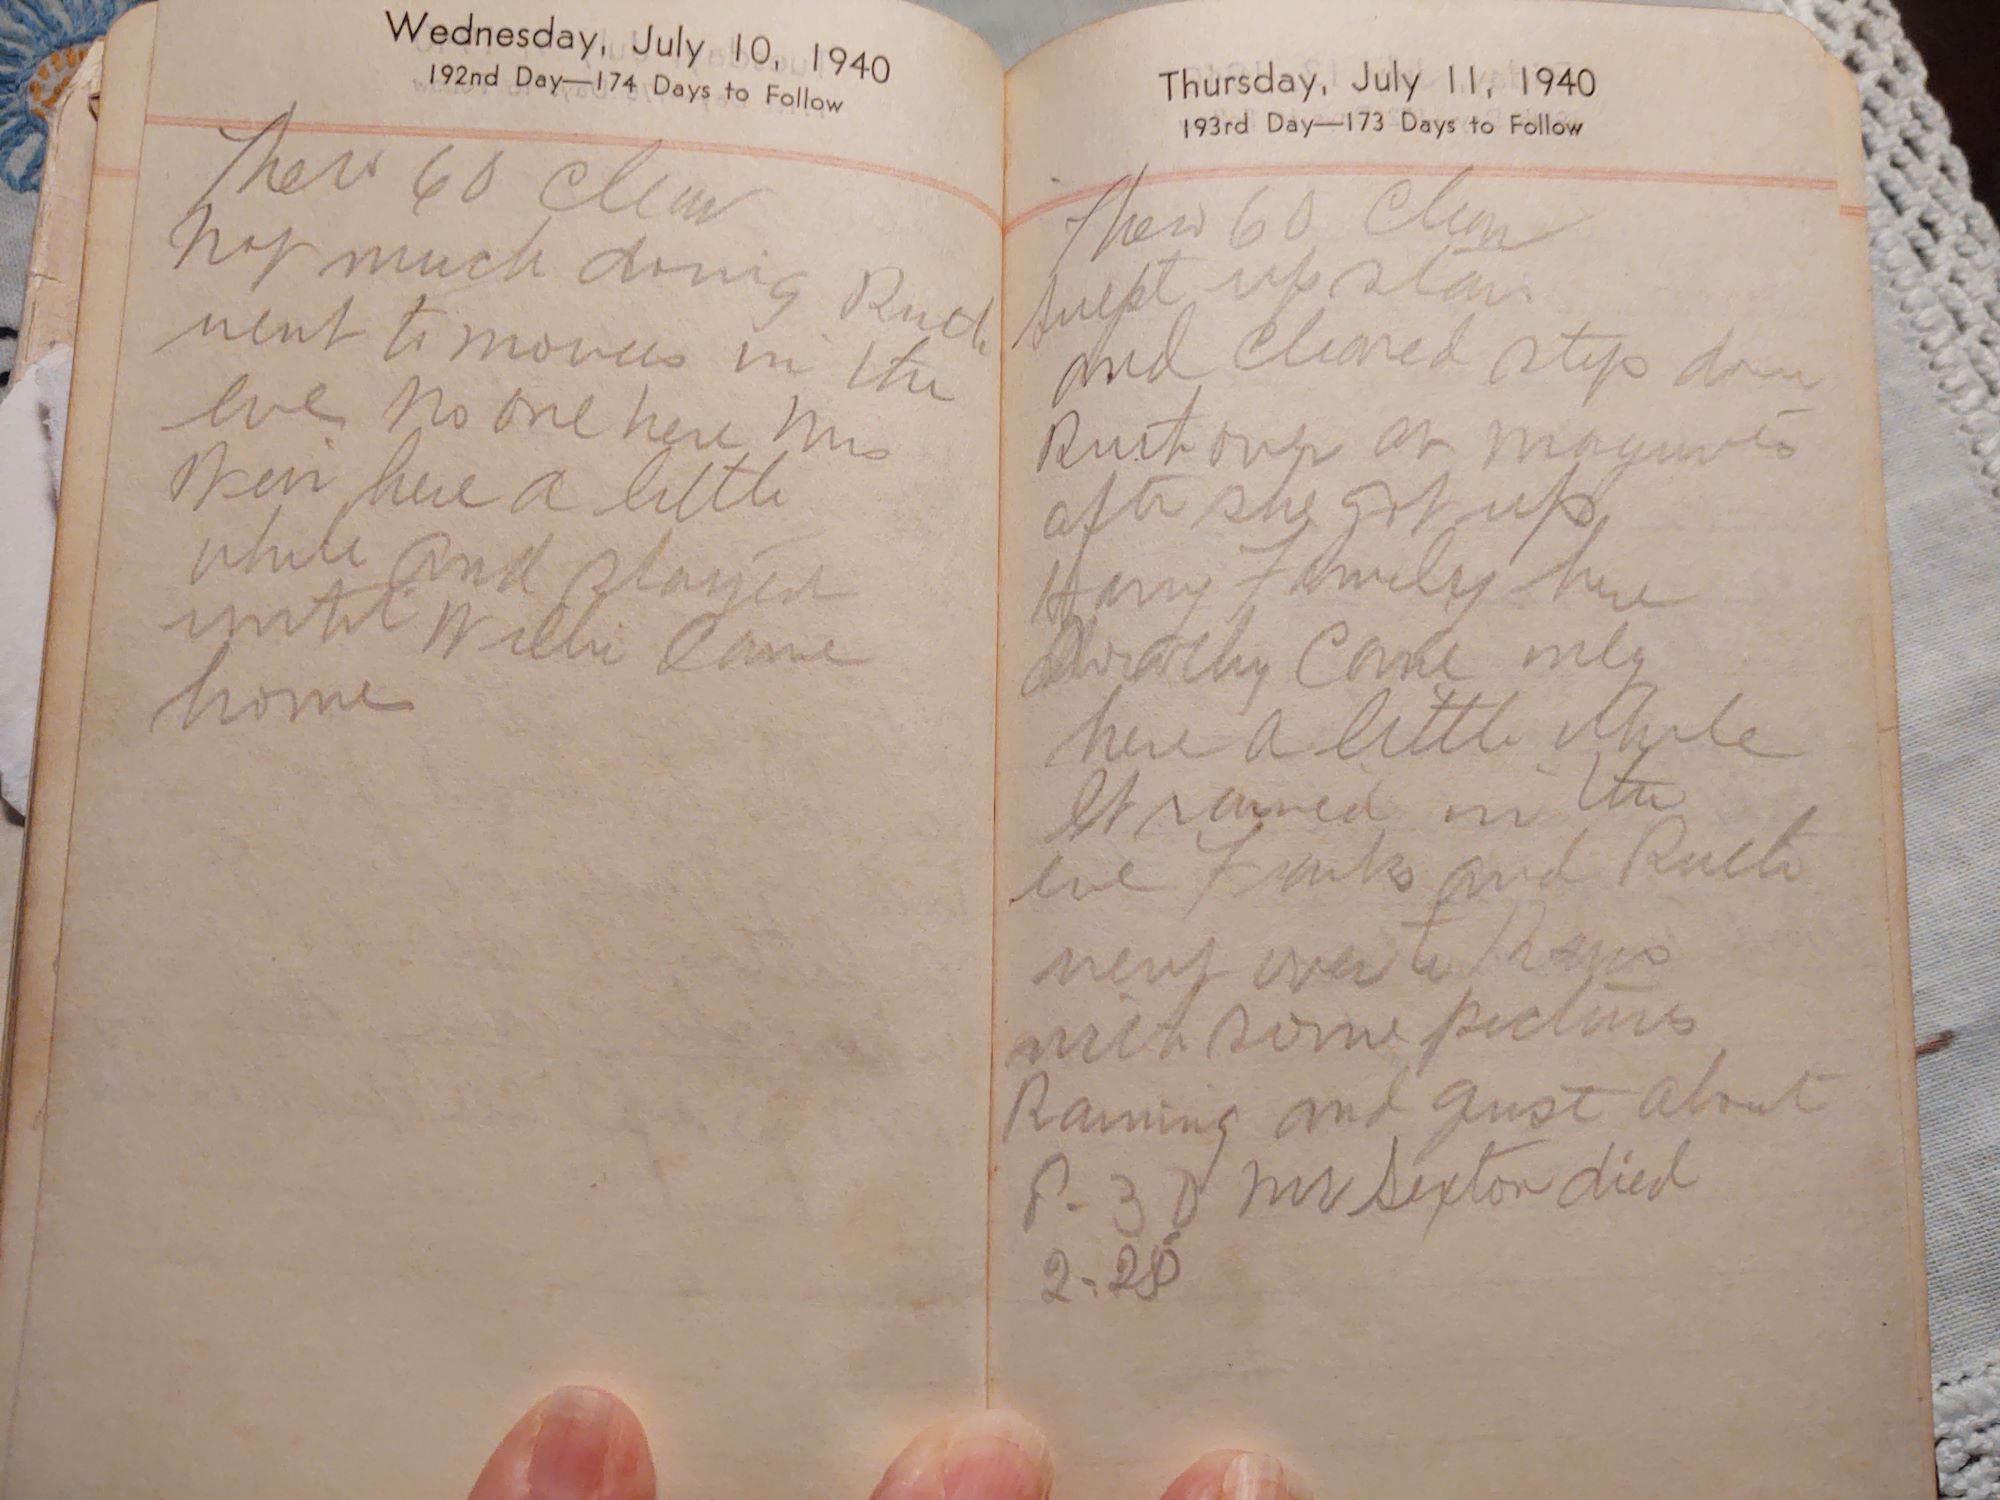 Wednesday, July 10, 1940
192nd Day—174 Days to Follow
Ther 60 Clear
Not much doing Ruth
went to movies in the
eve No one here Mrs
here a little
while and stayed
until Willie Came
home
Thursday, July 11, 1940
193rd Day—173 Days to Follow
Ther 60 Clear
swept up stairs
and Cleaned steps down
Ruth over at
after she got up
Harry Family here
Dorothy Came only
here a little while
It rained in the
eve Franks and Ruth
went over to
with some pictures
Raining and gust about
8-30 Mr Sexton died
2-20